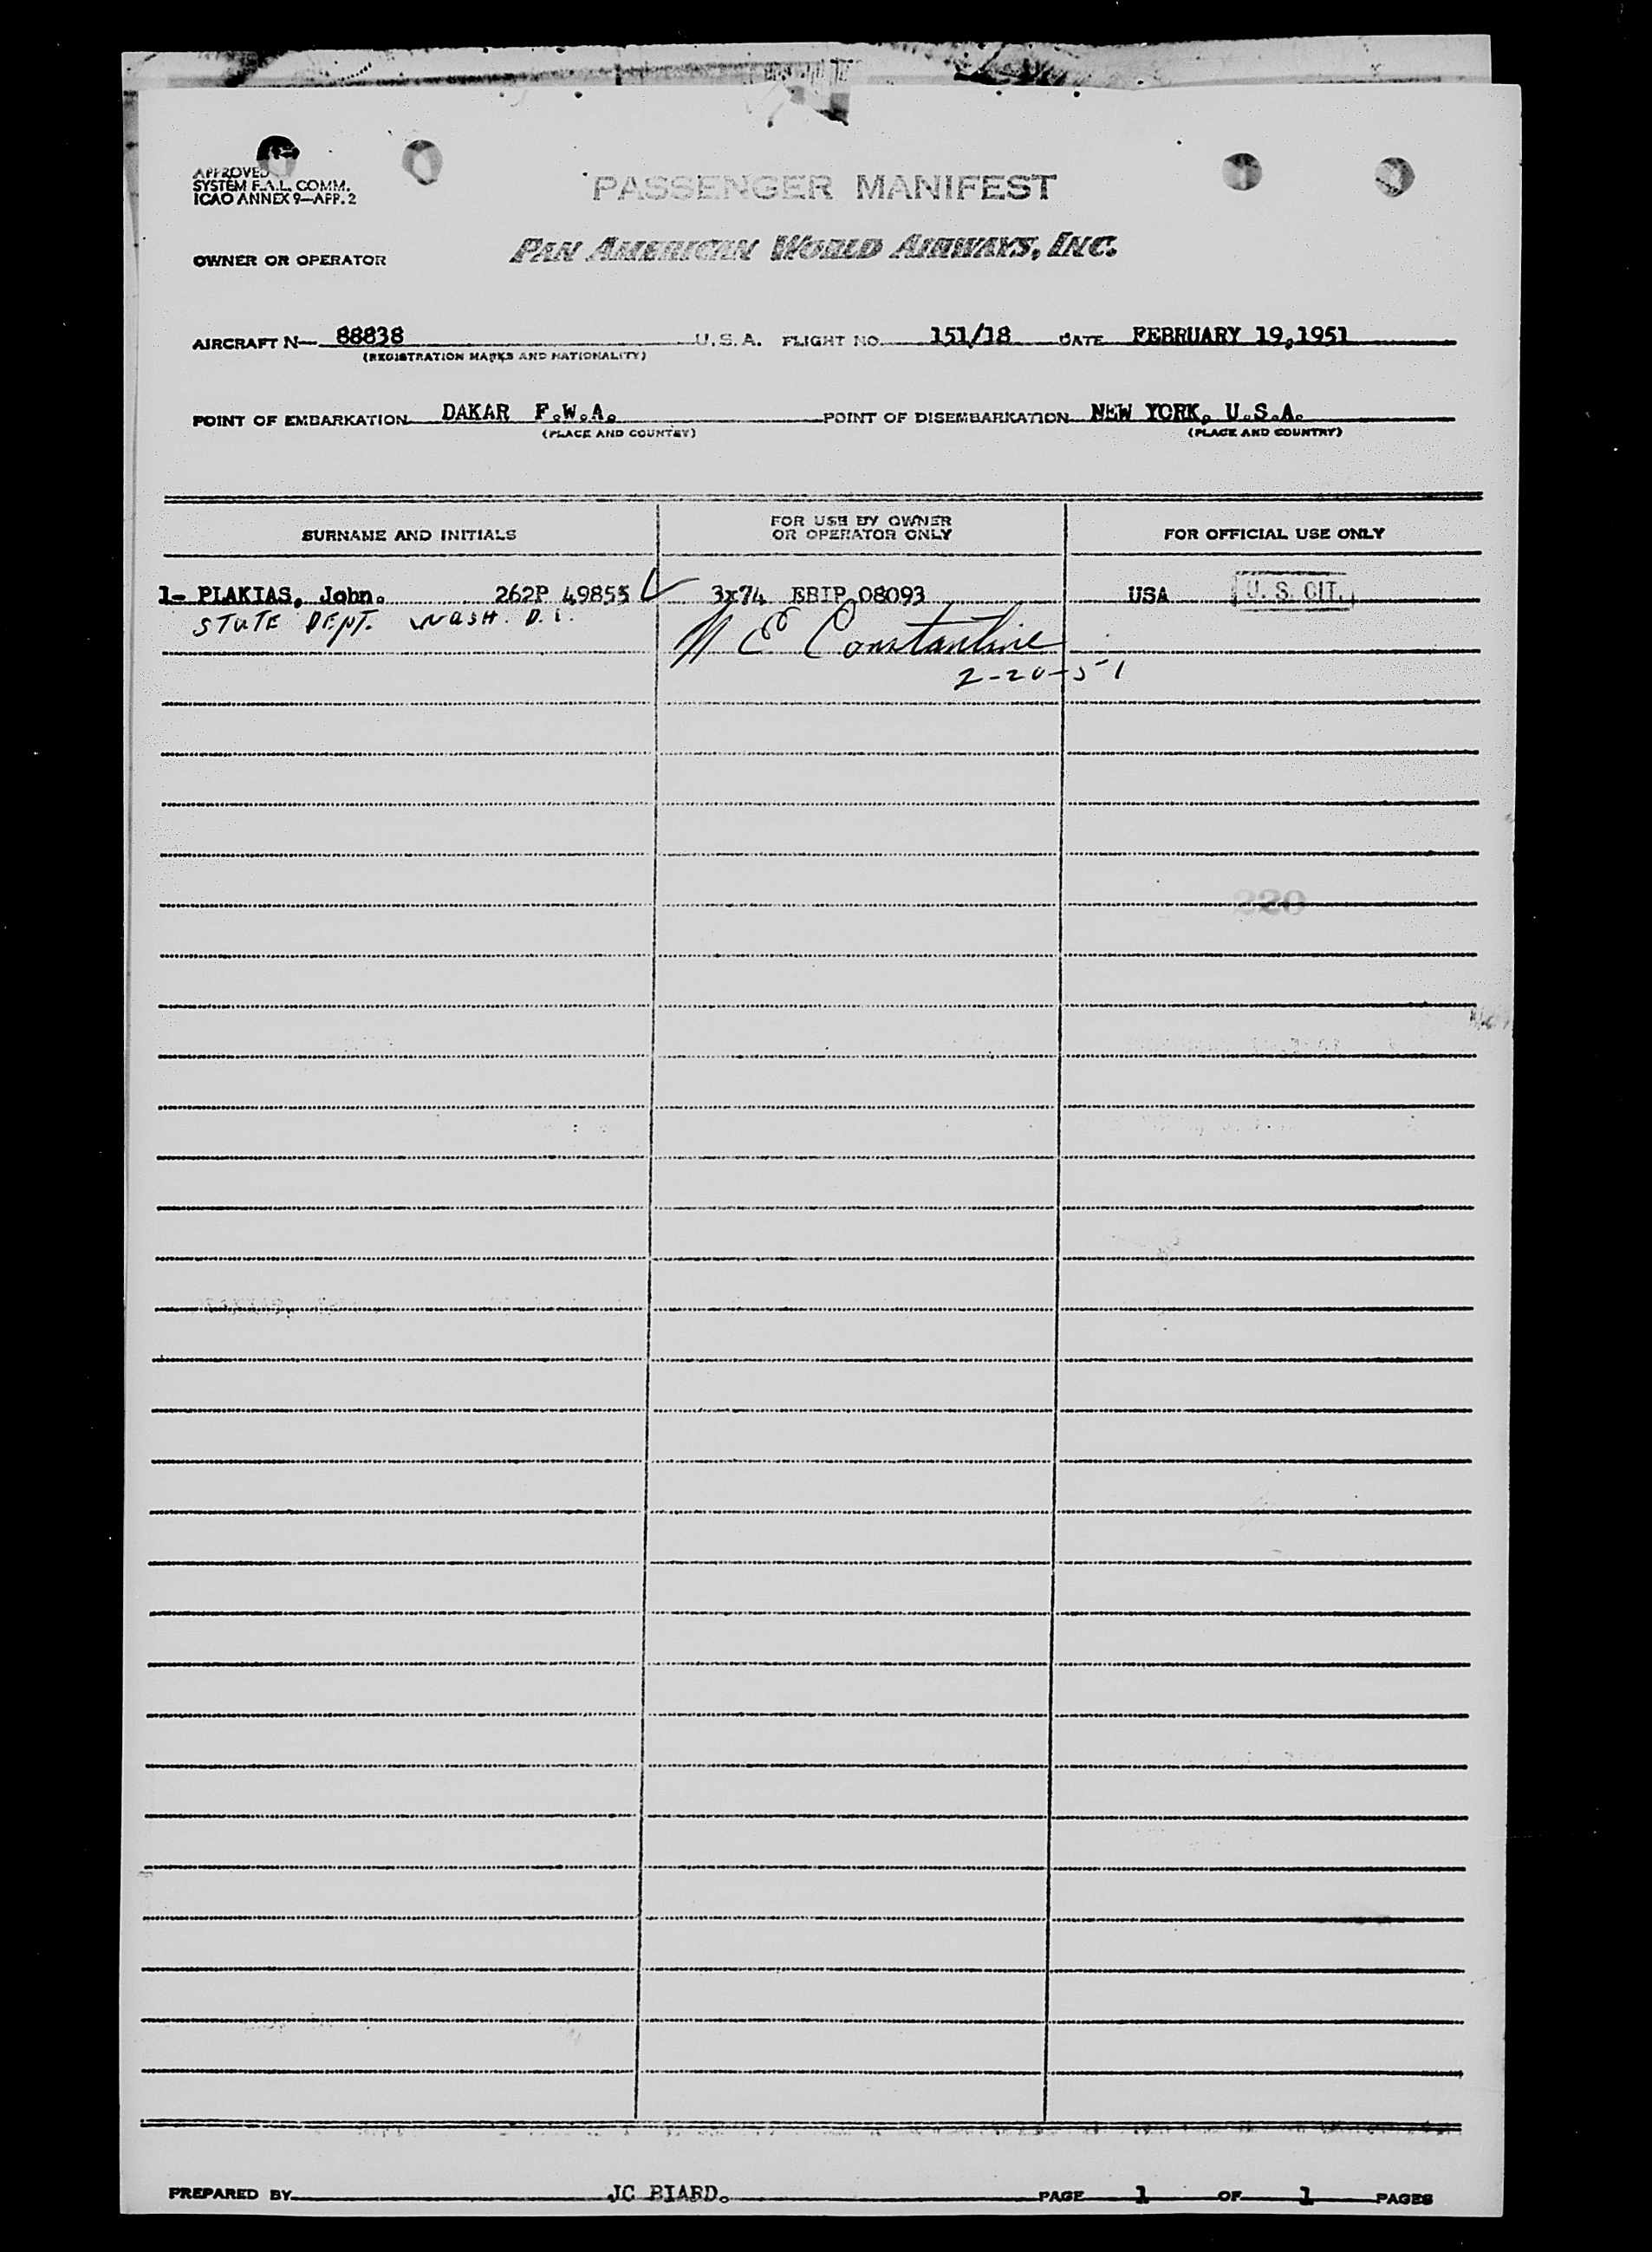 APPROVED
SYSTEM F.A.L. COMM.
ICAO ANNEX 9—APP. 2
PASSENGER MANIFEST
OWNER OR OPERATOR PAN AMERICAN WORLD AIRWAYS, INC.
AIRCRAFT N— 88838 U. S. A. FLIGHT NO. 151/18 DATE FEBRUARY 19,1951
(REGISTRATION MARKS AND NATIONALITY)
POINT OF EMBARKATION DAKAR F.W.A. POINT OF DISEMBARKATION NEW YORK, U.S.A.
(PLACE AND COUNTRY) (PLACE AND COUNTRY)
SURNAME AND INITIALS FOR USE BY OWNER OR OPERATOR ONLY FOR OFFICIAL USE ONLY
1- PLAKIAS, John. 262P 49855 3x74 EBIP 08093 USA U. S. CIT.
STATE DEPT. WASH. D.C.
N E Constantine
2-20-51
220
PREPARED BY JC BIARD. PAGE 1 OF 1 PAGES